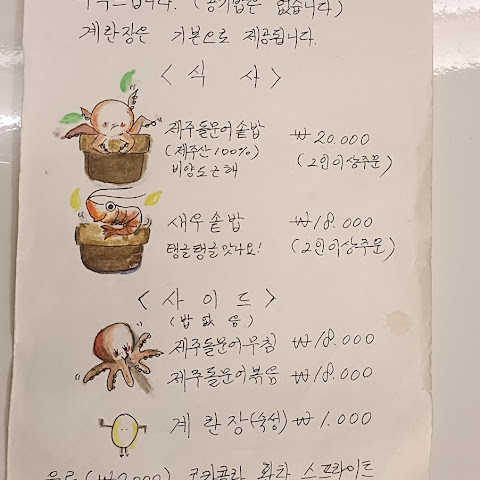 (공기밥은 없습니다)
계란장은 기본으로 제공됩니다.
< 식 사 >
제주돌문어솥밥 ₩20.000
(제주산 100%) (2인이상주문)
비양도근해
새우솥밥 ₩18.000
탱글탱글맛나요! (2인이상주문)
< 사 이 드 >
(밥 없 음)
제주돌문어무침 ₩18.000
제주돌문어볶음 ₩18.000
계 란 장(숙성) ₩1.000
음료(₩2000) 코카콜라 환타 스프라이트